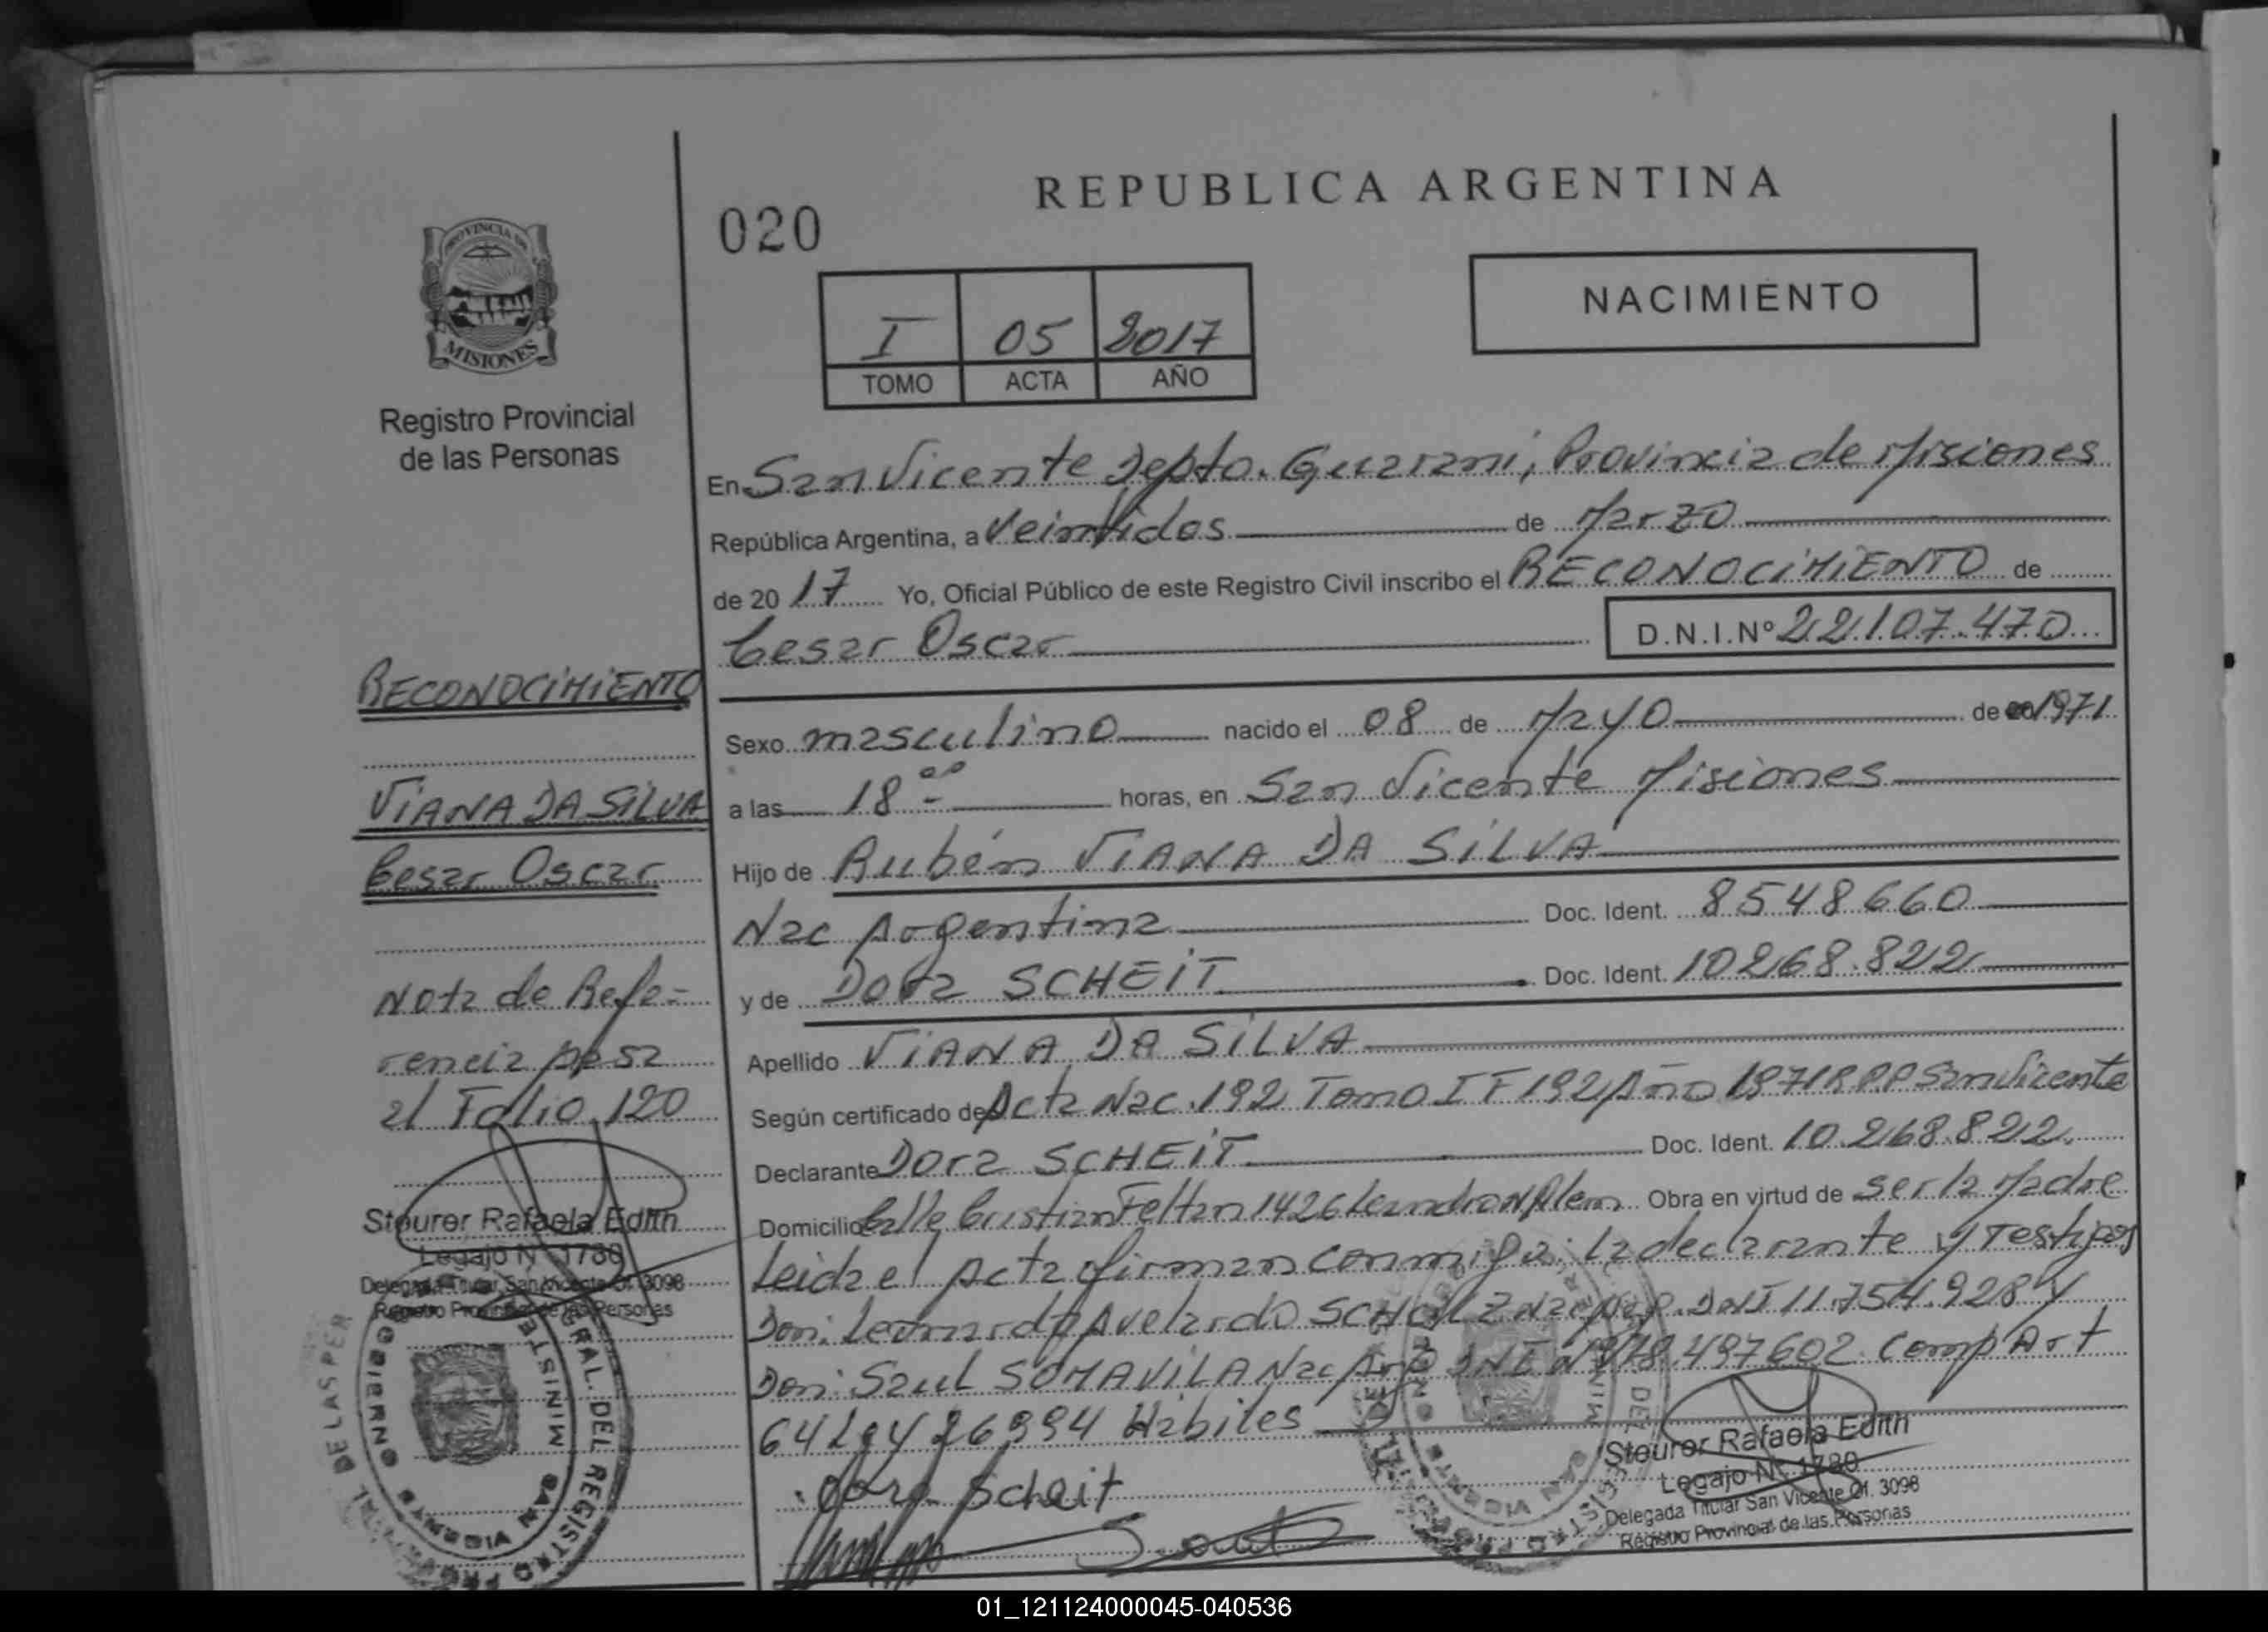 REPUBLICA ARGENTINA
020
NACIMIENTO
I 05 2017
TOMO ACTA AÑO
PROVINCIA DE
MISIONES
Registro Provincial
de las Personas
En San Vicente Depto. Guarani, Provincia de Misiones
República Argentina, a Veintidos de Marzo
de 2017 Yo, Oficial Público de este Registro Civil inscribo el RECONOCIMIENTO de
Cesar Oscar D.N.I.Nº 22.107.470
Sexo masculino nacido el 08 de Mayo de 1971
a las 18 00 horas, en San Vicente Misiones
Hijo de Rubén VIANA DA SILVA
Nac Argentina Doc. Ident. 8548660
y de Dora SCHEIT Doc. Ident. 10268.822
Apellido VIANA DA SILVA
Según certificado de Acta Nac. 192 Tomo I F 192 Año 1971 RPP San Vicente
Declarante Dora SCHEIT Doc. Ident. 10.268.822
Domicilio Calle Cristian Feltan 1426 Leandro N Alem Obra en virtud de ser la Madre
Leida el Acta firman conmigo: la declarante y Testigos
Don: Leonardo Avelardo Nac Arg. DNI 11.754.928 y
Don: Saul SOMAVILA Nac Arg DNI Nº 18.497602 Comp Art
64 Ley 26994 Habiles
Dora Scheit
Steurer Rafaela Edith
Legajo Nº 1780
Delegada Titular San Vicente Of. 3098
Registro Provincial de las Personas
RECONOCIMIENTO
VIANA DA SILVA
Cesar Oscar
Nota de Refe-
rencia pasa
al Folio 120
Steurer Rafaela Edith
Legajo Nº 1780
Delegada Titular San Vicente Of. 3098
Registro Provincial de las Personas
01_121124000045-040536